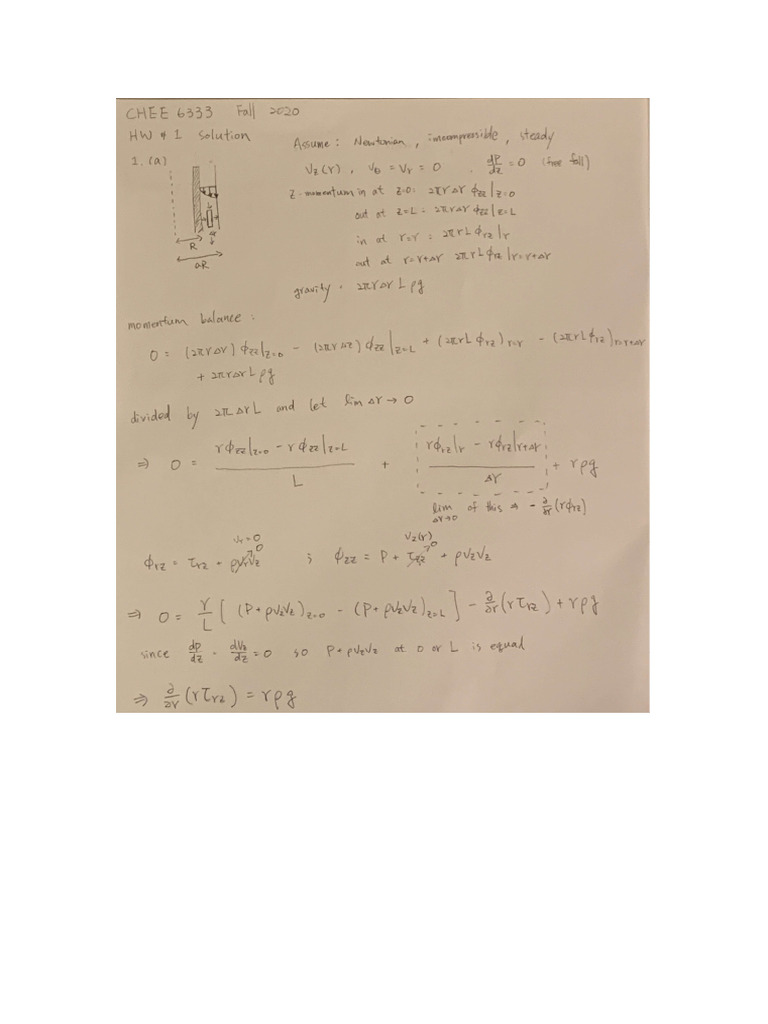 CHEE 6333 Fall 2020
HW # 1 Solution
Assume: Newtonian, incompressible, steady
1. (a)
V_z(r), V_θ = V_r = 0, dP/dz = 0 (free fall)
Z-momentum in at z=0: 2πrΔr ϕ_zz|z=0
out at z=L: 2πrΔr ϕ_zz|z=L
in at r=r: 2πrL ϕ_rz|r
out at r=r+Δr 2πrL ϕ_rz|r=r+Δr
R
aR
gravity: 2πrΔr L ρg
momentum balance:
0 = (2πrΔr) ϕ_zz|z=0 - (2πrΔr) ϕ_zz|z=L + (2πrL ϕ_rz)r=r - (2πrL ϕ_rz)r=r+Δr
+ 2πrΔr L ρg
divided by 2πΔrL and let lim Δr → 0
⇒ 0 = (rϕ_zz|z=0 - rϕ_zz|z=L)/L + (rϕ_rz|r - rϕ_rz|r+Δr)/Δr + rρg
lim Δr→0 of this ⇒ -∂/∂r (rϕ_rz)
V_r=0 0 V_z(r) 0
ϕ_rz = τ_rz + ρV_rV_z ; ϕ_zz = P + τ_zz + ρV_zV_z
⇒ 0 = r/L [ (P+ρV_zV_z)z=0 - (P+ρV_zV_z)z=L ] - ∂/∂r (rτ_rz) + rρg
since dP/dz = dV_z/dz = 0 so P+ρV_zV_z at 0 or L is equal
⇒ ∂/∂r (rτ_rz) = rρg